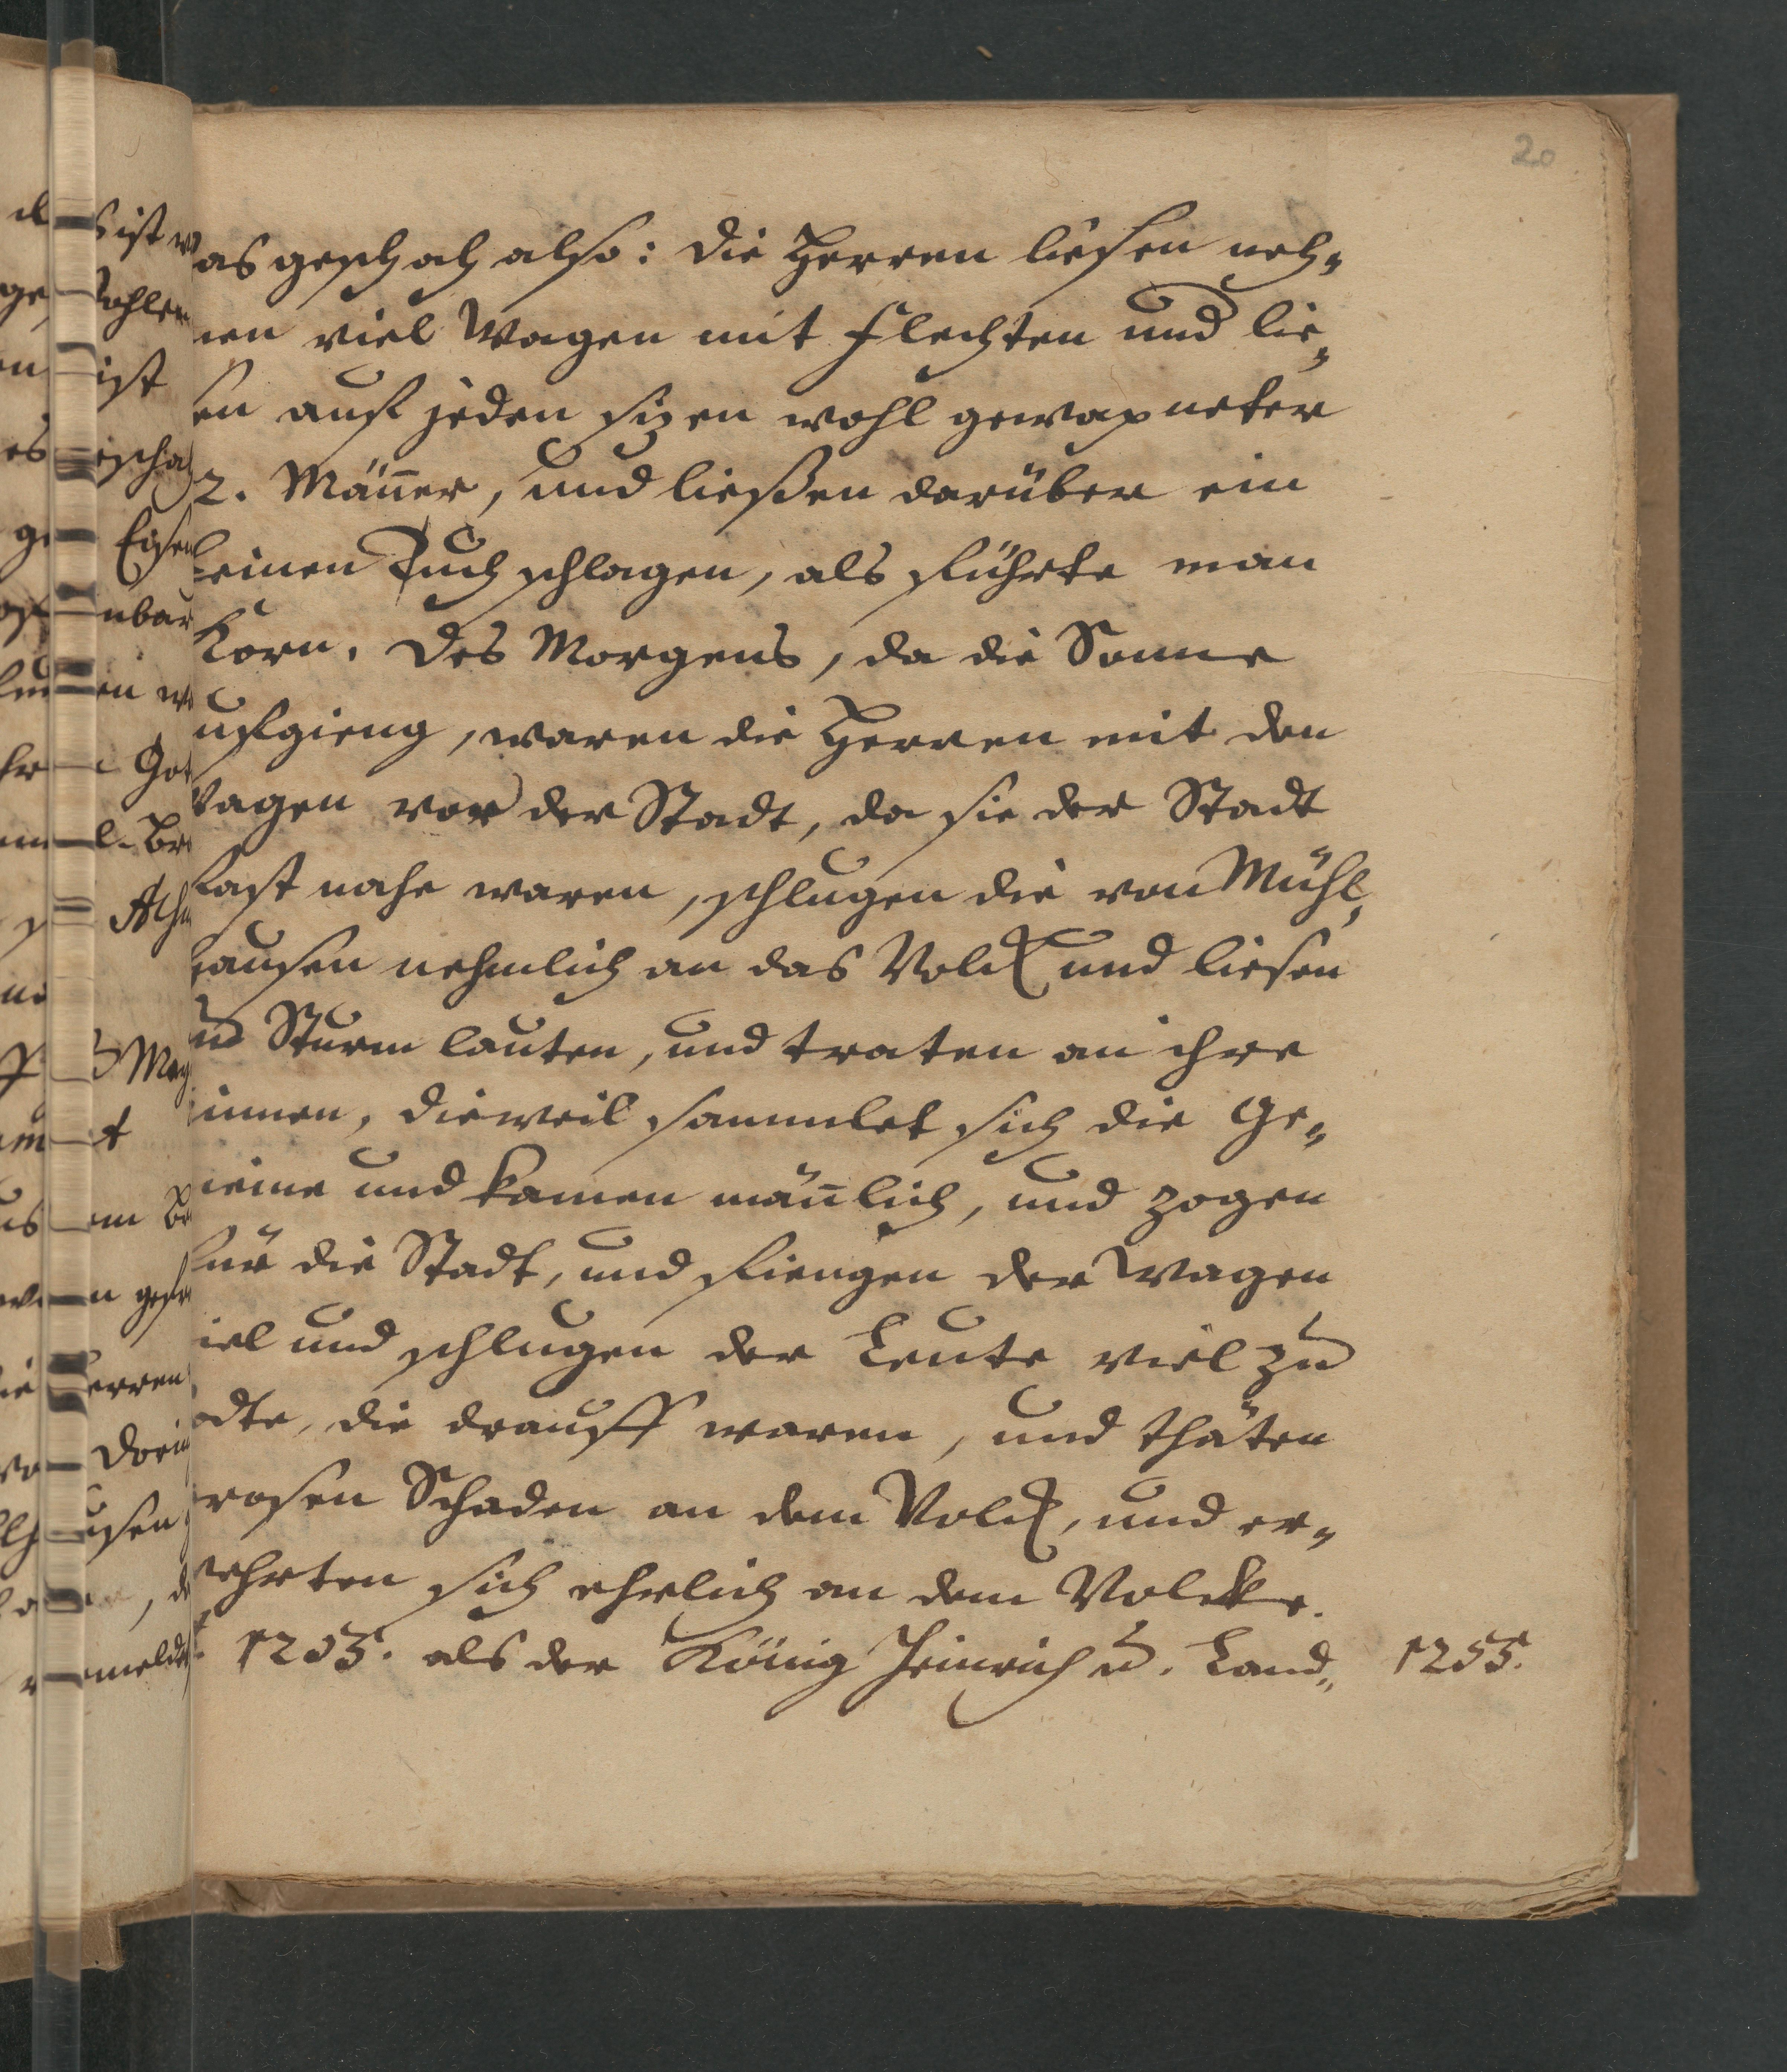 20
as geschah also: die Herren liesen neh„
en viel Wagen mit flechten und lie„
en auf jeden sizen wohl gewapneter
2. Mäñer, und ließen darüber ein
leinen Tuch schlagen, als führte man
Korn. Des Morgens, da die Sonne
ufgieng, waren die Herren mit den
agen vor der Stadt, da sie der Stadt
fast nahe waren, schlugen die von Mühl„
ausen nehmlich an das Volck und liesen
Sturm lauten, und traten an ihre
innen, dieweil sammlet sich die Ge„
eine und kamen mäñlich, und zogen
für die Stadt, und fiengen der Wagen
iel und schlugen der Leute viel zu
odte, die drauff waren, und thäten
rosen Schaden an dem Volck, und er„
ehrten sich ehrlich an dem Volcke.
1255. als der König Heinrich u. Land„ 1255.